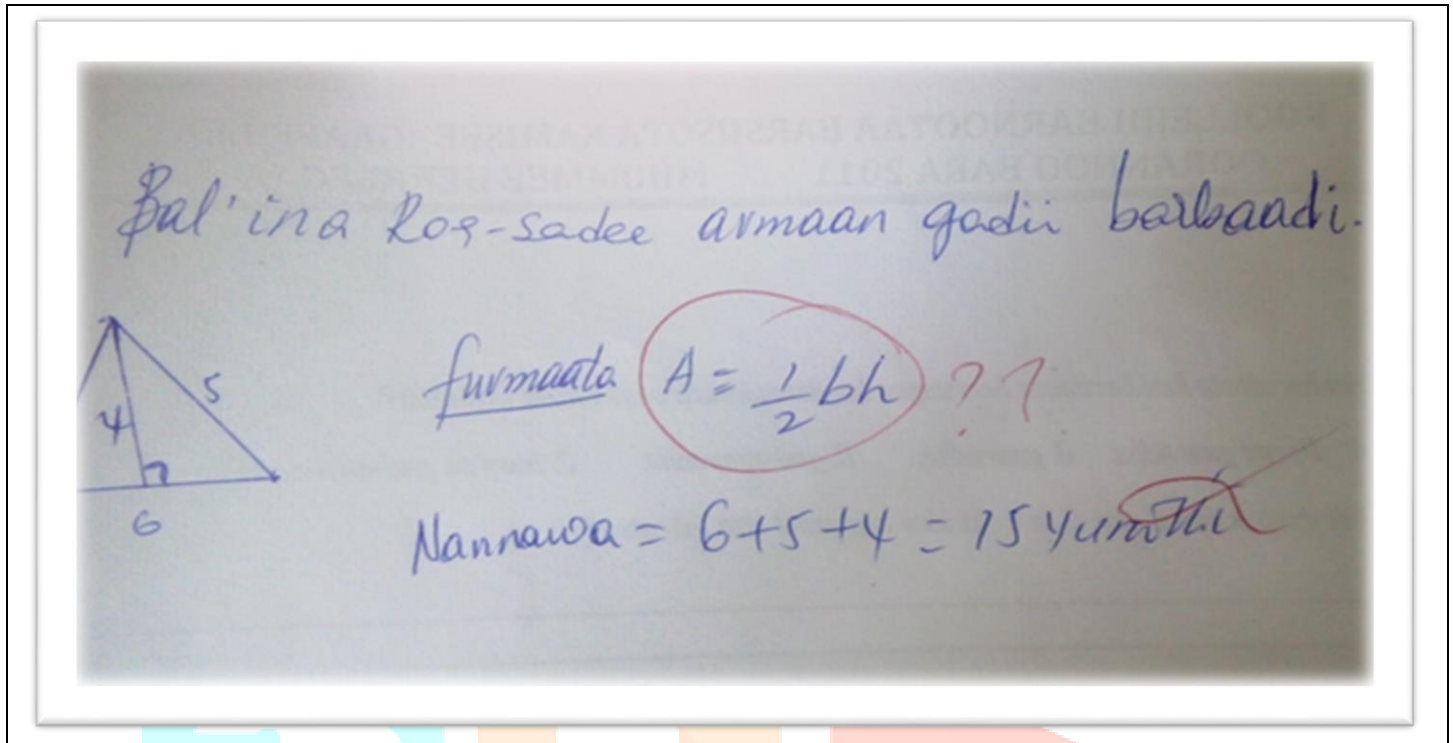 Bal'ina Rog-sadee armaan gadii barbaadi.
furmaata A = 1/2 bh ??
4
5
6
Nannawa = 6+5+4 = 15 Yuniitii